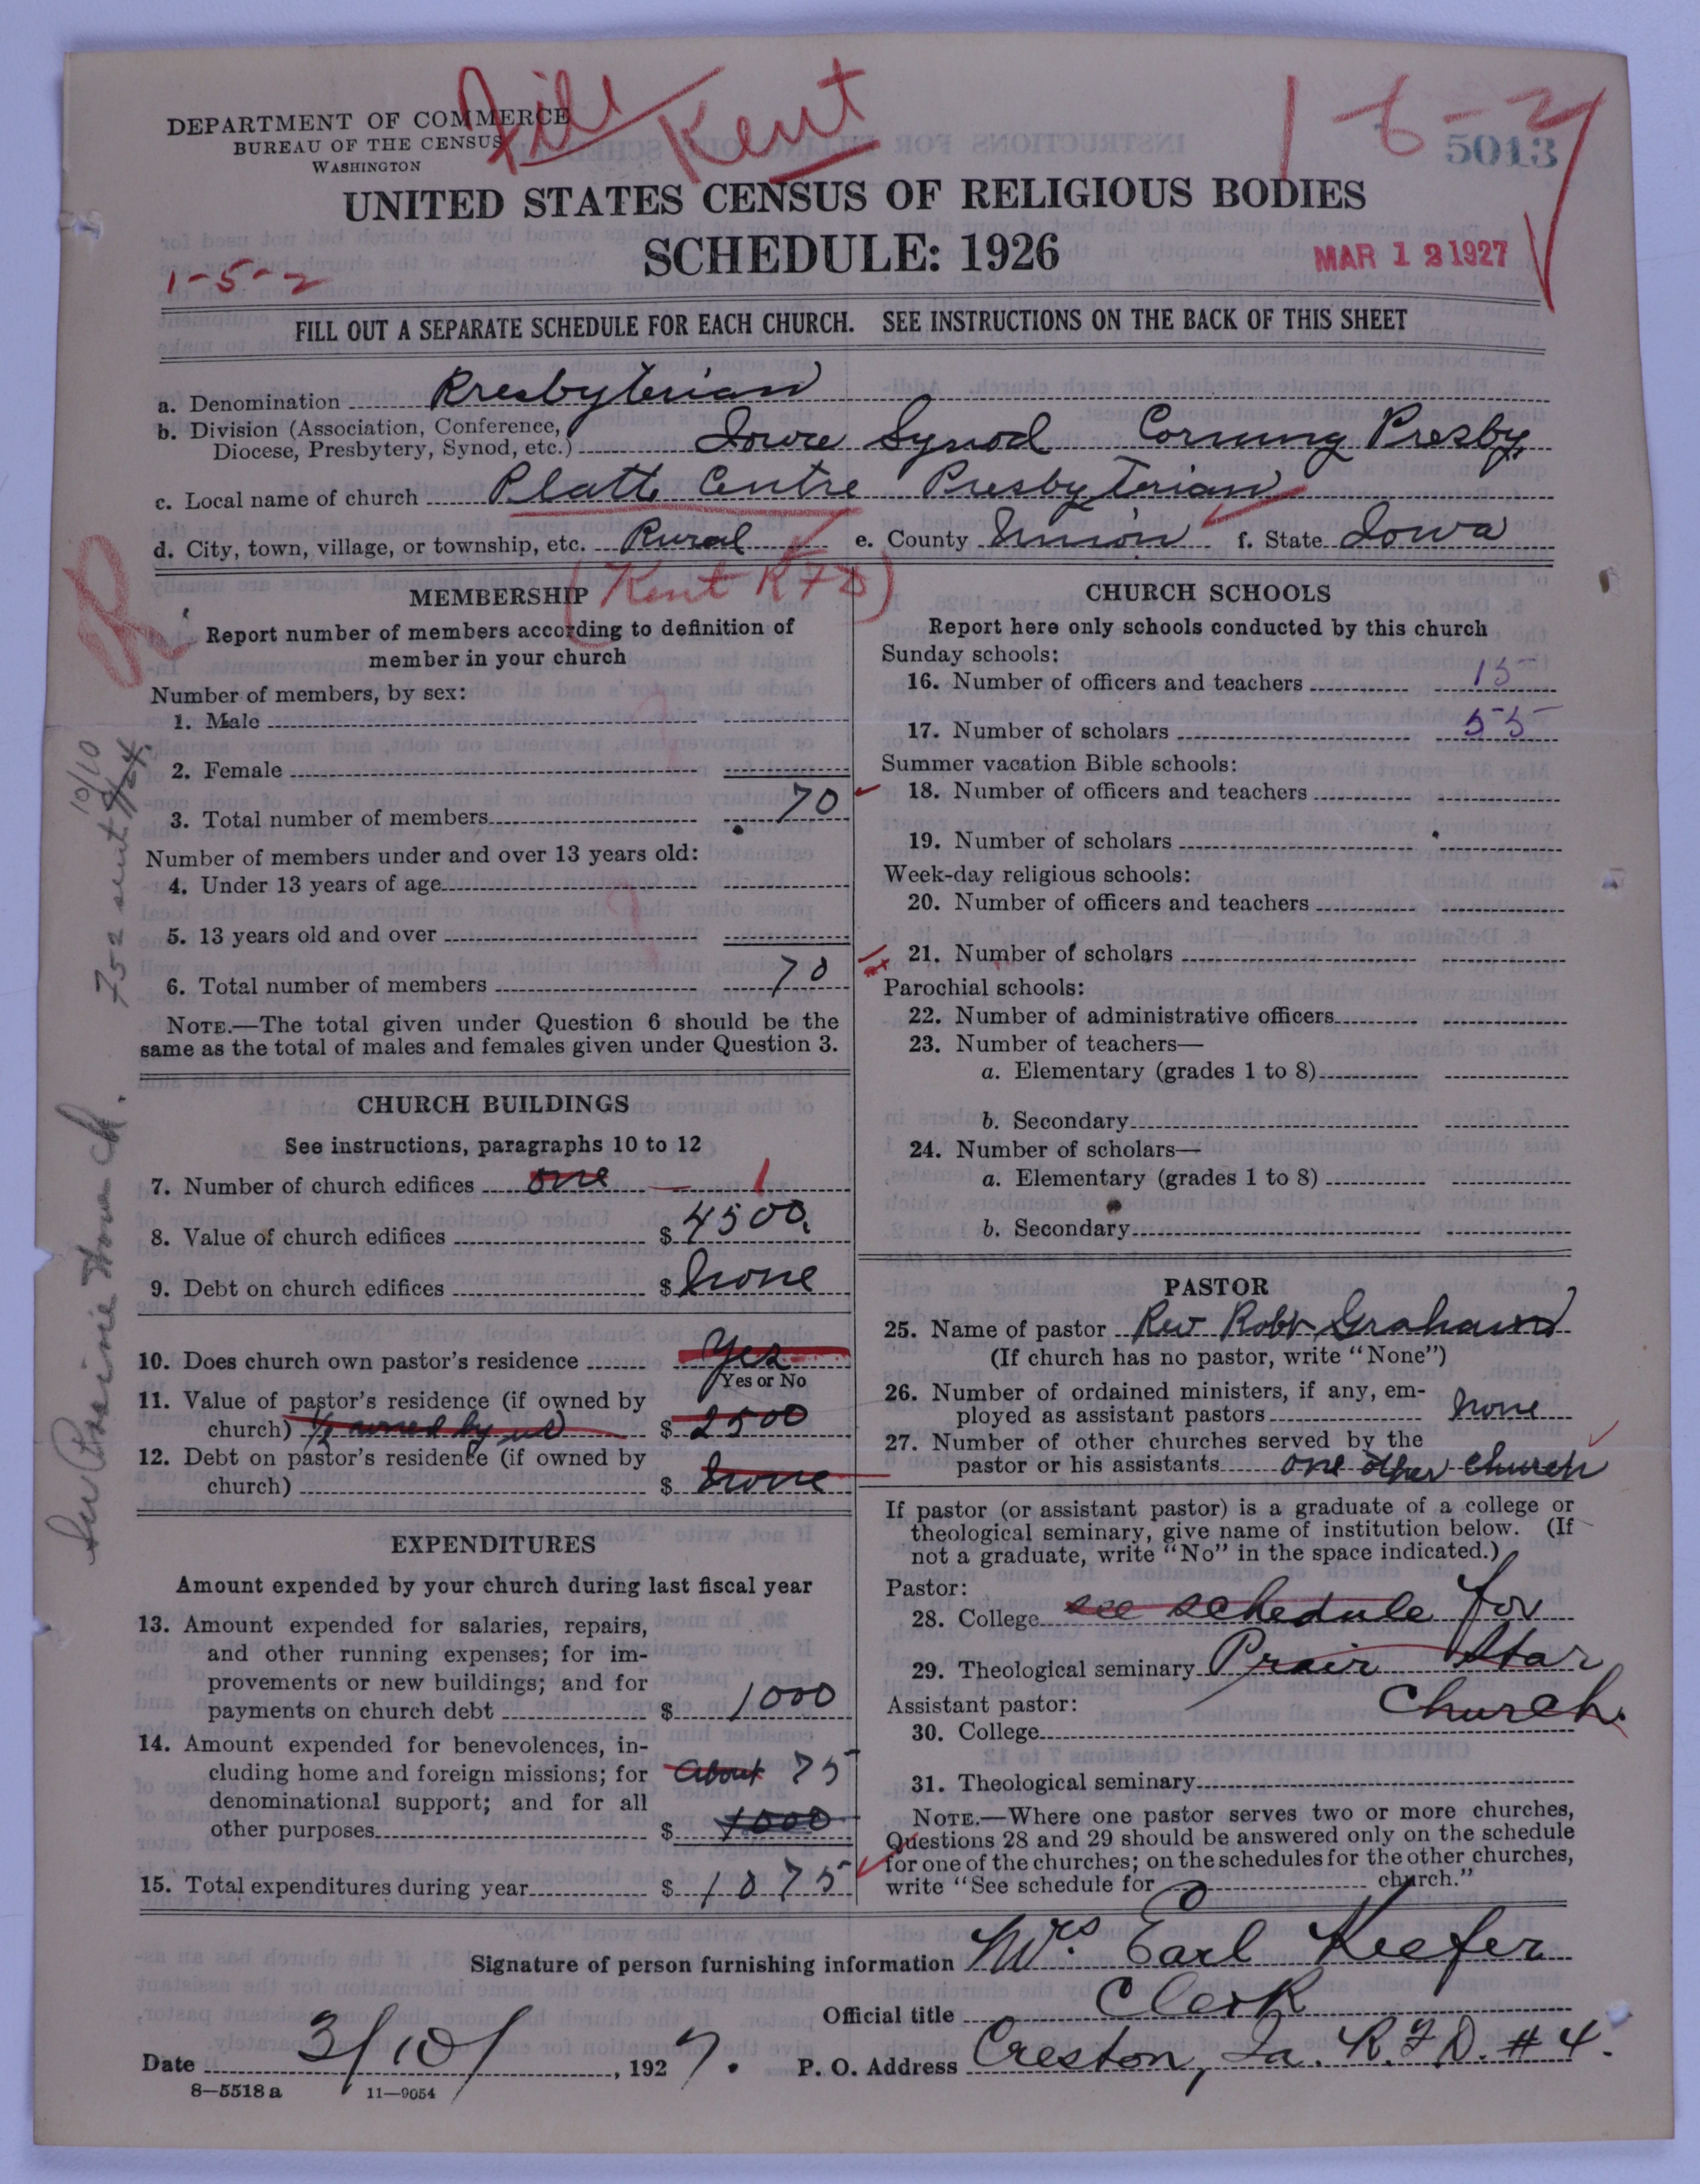 DEPARTMENT OF COMMERCE
BUREAU OF THE CENSUS
WASHINGTON
Kent
5013
UNITED STATES CENSUS OF RELIGIOUS BODIES
SCHEDULE: 1926
MAR 12 1927
1-5-2
FILL OUT A SEPARATE SCHEDULE FOR EACH CHURCH. SEE INSTRUCTIONS ON THE BACK OF THIS SHEET
a. Denomination Presbyterian
b. Division (Association, Conference, Diocese, Presbytery, Synod, etc.) Iowa Synod Corning Presby.
c. Local name of church Platte Centre Presbyterian
d. City, town, village, or township, etc. Rural e. County Union f. State Iowa
(Kent RFD)
MEMBERSHIP
Report number of members according to definition of
member in your church
Number of members, by sex:
1. Male
2. Female
3. Total number of members 70
Number of members under and over 13 years old:
4. Under 13 years of age
5. 13 years old and over
6. Total number of members 70
NOTE.—The total given under Question 6 should be the
same as the total of males and females given under Question 3.
CHURCH BUILDINGS
See instructions, paragraphs 10 to 12
7. Number of church edifices one — 1
8. Value of church edifices $ 4500.
9. Debt on church edifices $ none
10. Does church own pastor's residence Yes
Yes or No
11. Value of pastor's residence (if owned by
church) 1/2 owned by us $ 2500
12. Debt on pastor's residence (if owned by
church) $ none
EXPENDITURES
Amount expended by your church during last fiscal year
13. Amount expended for salaries, repairs,
and other running expenses; for im-
provements or new buildings; and for
payments on church debt $ 1000
14. Amount expended for benevolences, in-
cluding home and foreign missions; for about 75
denominational support; and for all
other purposes $ 1000
15. Total expenditures during year $ 1075
CHURCH SCHOOLS
Report here only schools conducted by this church
Sunday schools:
16. Number of officers and teachers 15
17. Number of scholars 55
Summer vacation Bible schools:
18. Number of officers and teachers
19. Number of scholars
Week-day religious schools:
20. Number of officers and teachers
21. Number of scholars
Parochial schools:
22. Number of administrative officers
23. Number of teachers—
a. Elementary (grades 1 to 8)
b. Secondary
24. Number of scholars—
a. Elementary (grades 1 to 8)
b. Secondary
PASTOR
25. Name of pastor Rev Robt Graham
(If church has no pastor, write "None")
26. Number of ordained ministers, if any, em-
ployed as assistant pastors none
27. Number of other churches served by the
pastor or his assistants one other church
If pastor (or assistant pastor) is a graduate of a college or
theological seminary, give name of institution below. (If
not a graduate, write "No" in the space indicated.)
Pastor:
28. College see schedule for
29. Theological seminary Prair Star
Assistant pastor: Church.
30. College
31. Theological seminary
NOTE.—Where one pastor serves two or more churches,
Questions 28 and 29 should be answered only on the schedule
for one of the churches; on the schedules for the other churches,
write "See schedule for church."
Signature of person furnishing information Mrs. Earl Keefer
Official title Clerk
Date 3/10/, 1927. P. O. Address Creston, Ia. R.F.D. #4.
8—5518a 11—9054